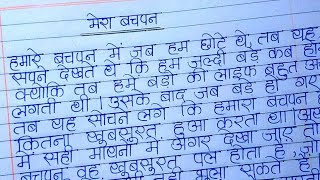 मेरा बचपन
हमारे बचपन में जब हम छोटे थे, तब यह
सपने देखते थे कि हम जल्दी बड़े कब हों
क्योंकि तब हमें बड़ों की लाइफ बहुत
लगती थी। उसके बाद जब बड़े हो गए
तब यह सोचने लगे कि हमारा बचपन
कितना खूबसूरत हुआ करता था।
में सही मायनों में अगर देखा जाए तो
बचपन वह खूबसूरत पल होता है, जो
नहीं भुला सकते